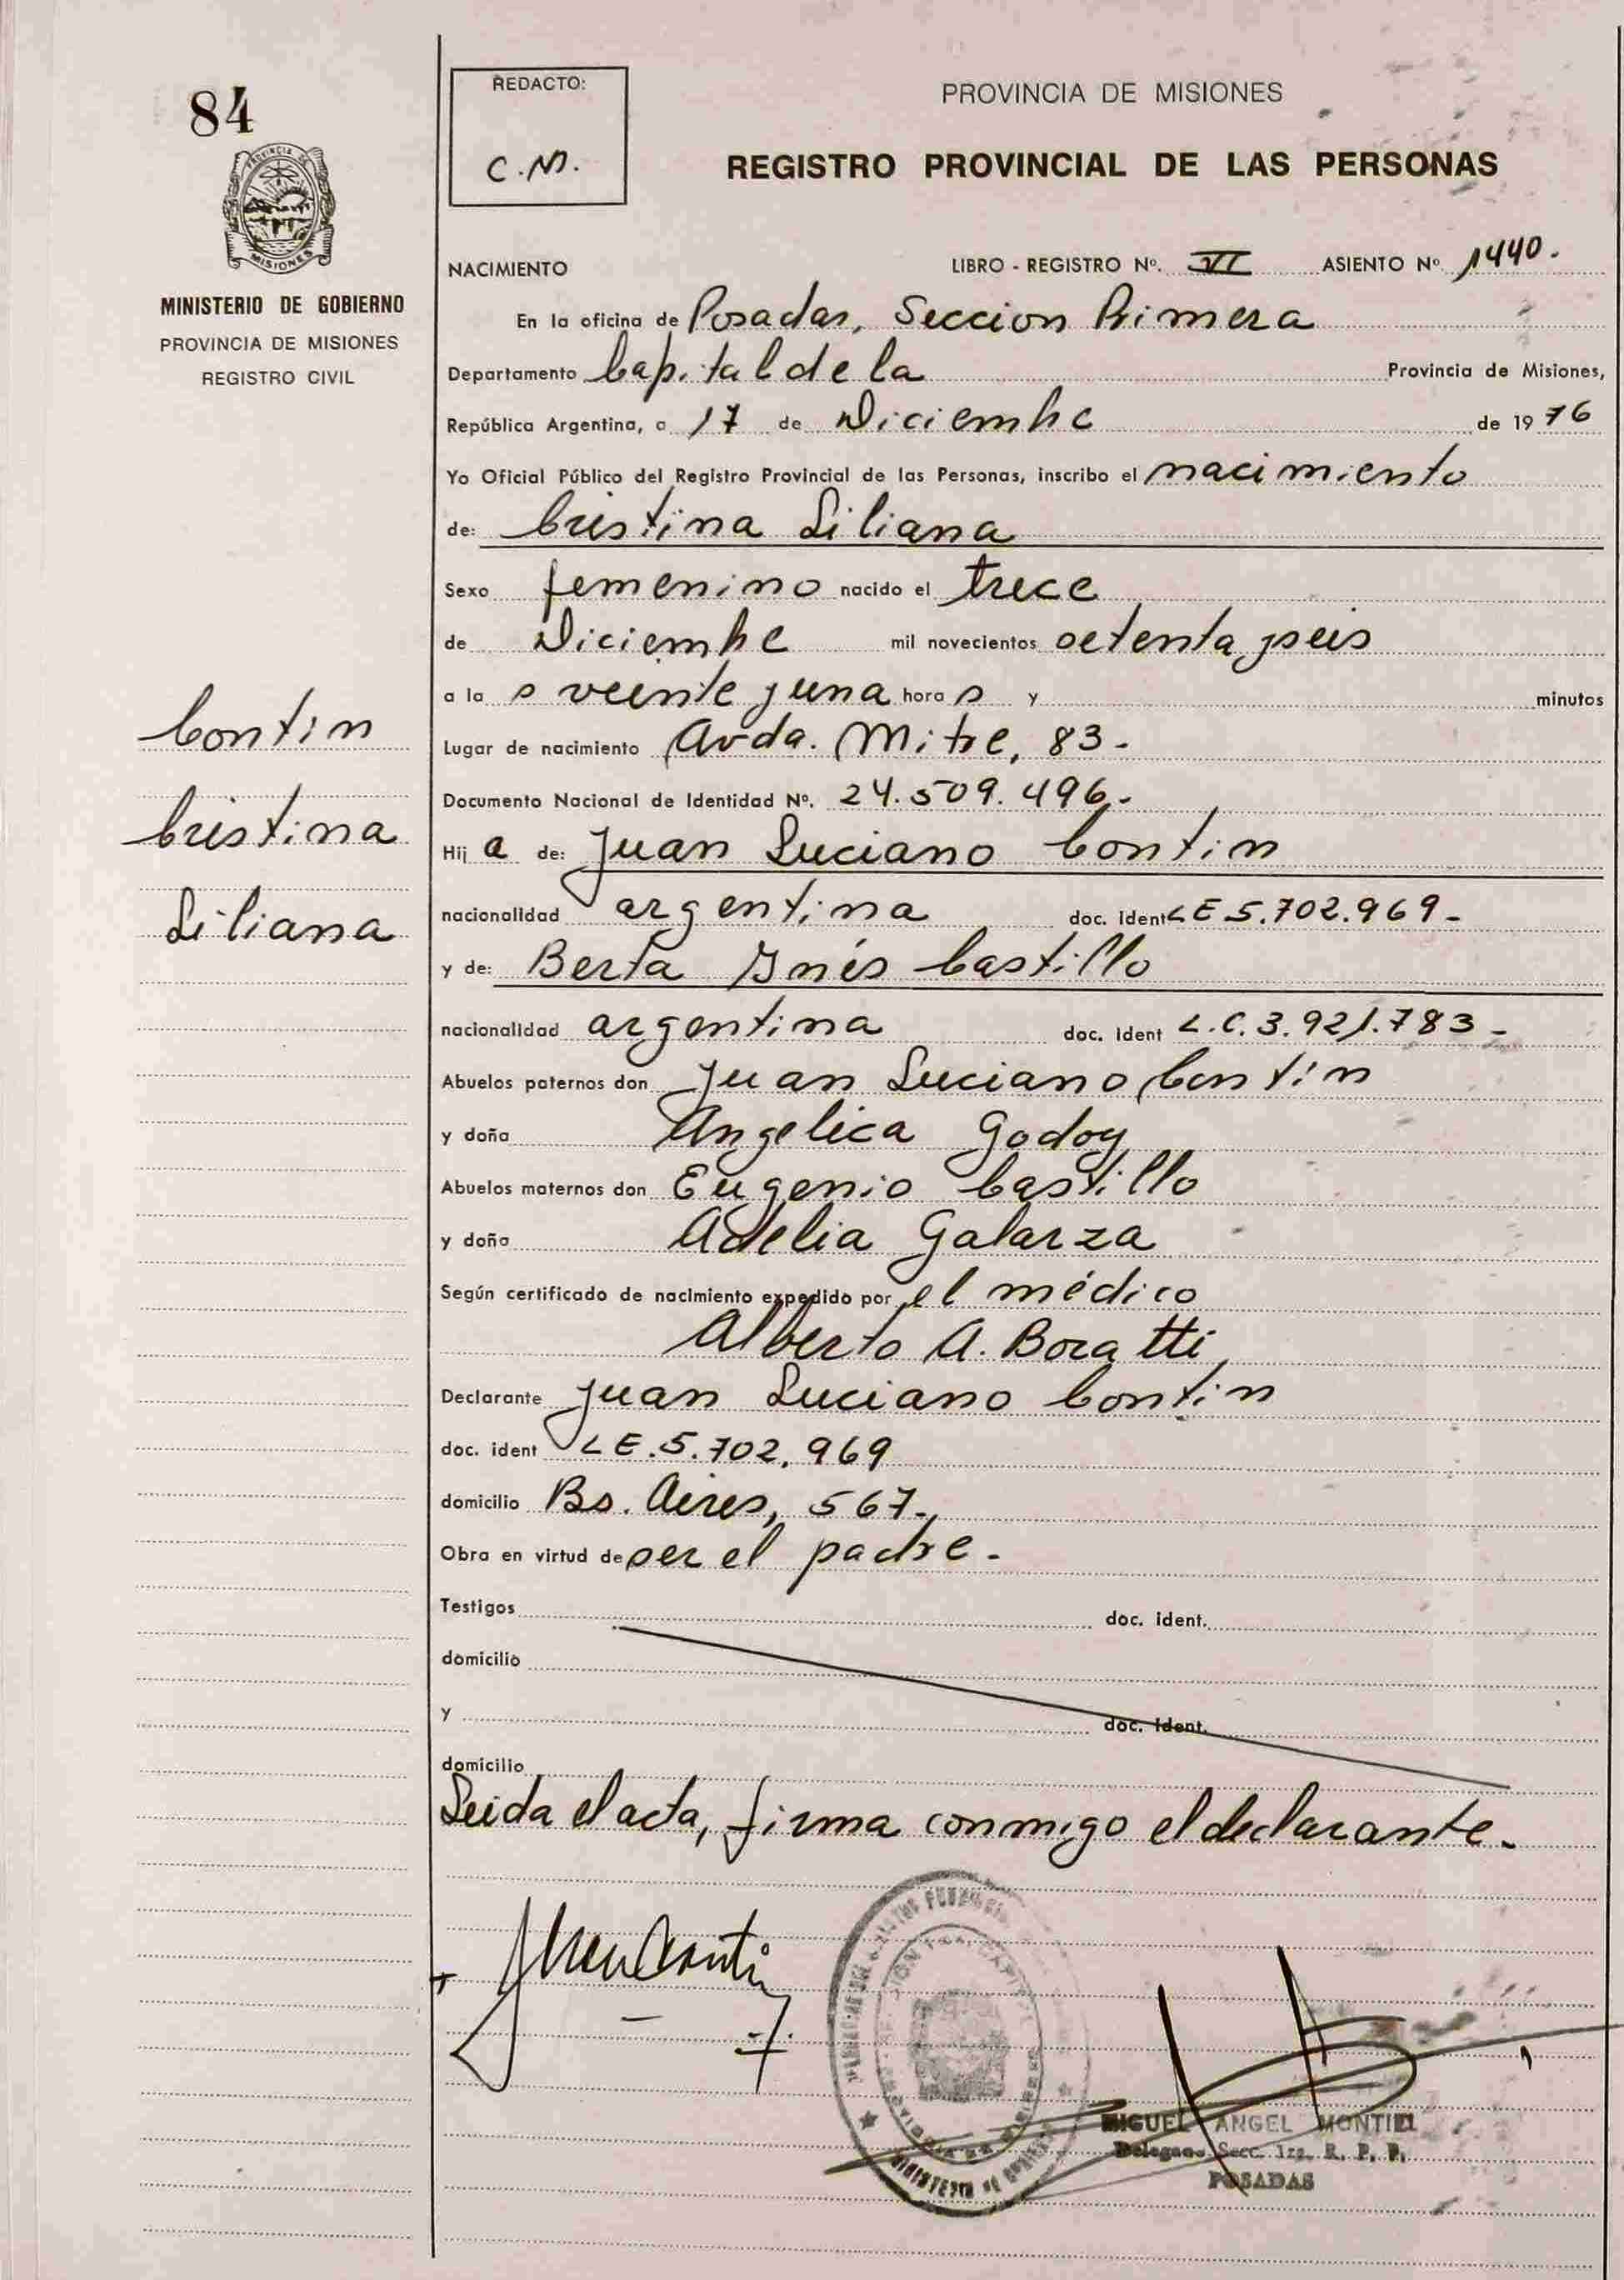 84
PROVINCIA DE
MISIONES
MINISTERIO DE GOBIERNO
PROVINCIA DE MISIONES
REGISTRO CIVIL
Contin
Cristina
Liliana
REDACTO:
C.M.
PROVINCIA DE MISIONES
REGISTRO PROVINCIAL DE LAS PERSONAS
NACIMIENTO LIBRO - REGISTRO Nº. VI ASIENTO Nº 1440.
En la oficina de Posadas, Seccion Primera
Departamento Capital de la Provincia de Misiones,
República Argentina, a 17 de Diciembre de 1976
Yo Oficial Público del Registro Provincial de las Personas, inscribo el nacimiento
de: Cristina Liliana
Sexo femenino nacido el trece
de Diciembre mil novecientos setenta y seis
a las veinte y una horas y minutos
Lugar de nacimiento Avda. Mitre, 83.-
Documento Nacional de Identidad Nº. 24.509.496.-
Hija de: Juan Luciano Contin
nacionalidad argentina doc. ident LE 5.702.969-
y de: Berta Inés Castillo
nacionalidad argentina doc. ident L.C.3.921.783-
Abuelos paternos don Juan Luciano Contin
y doña Angelica Godoy
Abuelos maternos don Eugenio Castillo
y doña Adelia Galarza
Según certificado de nacimiento expedido por el médico
Alberto A. Boratti
Declarante Juan Luciano Contin
doc. ident LE.5.702.969
domicilio Bs. Aires, 567.-
Obra en virtud de ser el padre.-
Testigos doc. ident.
domicilio
y doc. ident.
domicilio
Leida el acta, firma conmigo el declarante.-
MINISTERIO DE
MIGUEL ANGEL MONTIEL
Delegado Secc. 1ra. R. P. P.
POSADAS